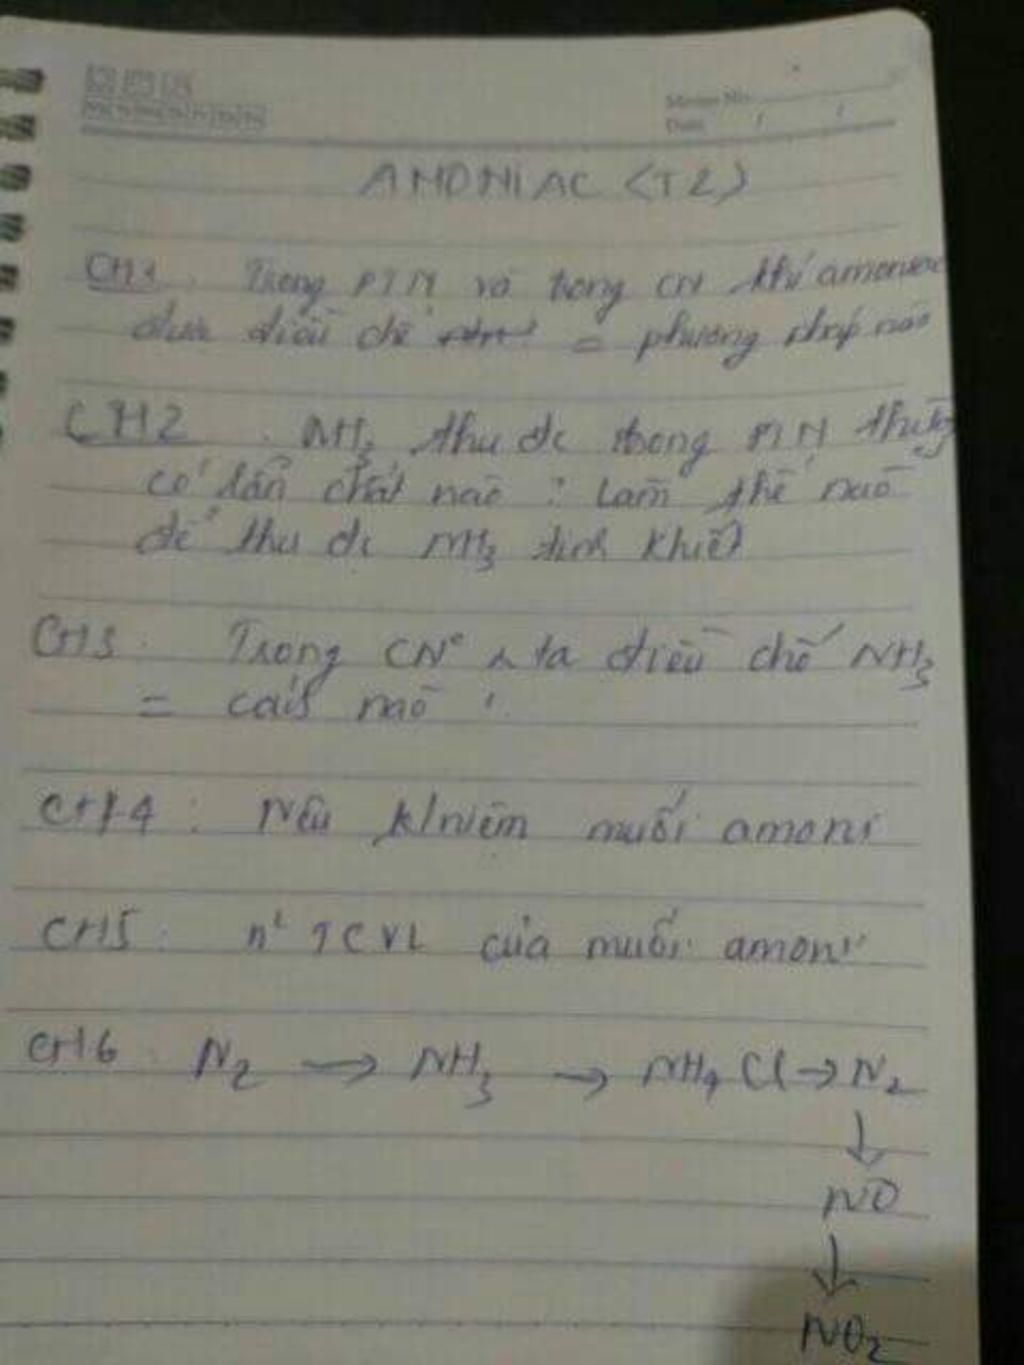 Memo No.
Date / /
AMONiAC (T2)
CH1. Trong PTN và trong CN khí amoniac
được điều chế = phương pháp nào
CH2. NH3 thu đc trong PTN thường
có lẫn chất nào? Làm thế nào
để thu đc NH3 tinh khiết
CH3. Trong CN° ta điều chế NH3
= cách nào?
CH4: Nêu k/niệm muối amoni
CH5: n² TCVL của muối amoni
CH6. N2 → NH3 → NH4Cl → N2
↓
NO
↓
NO2